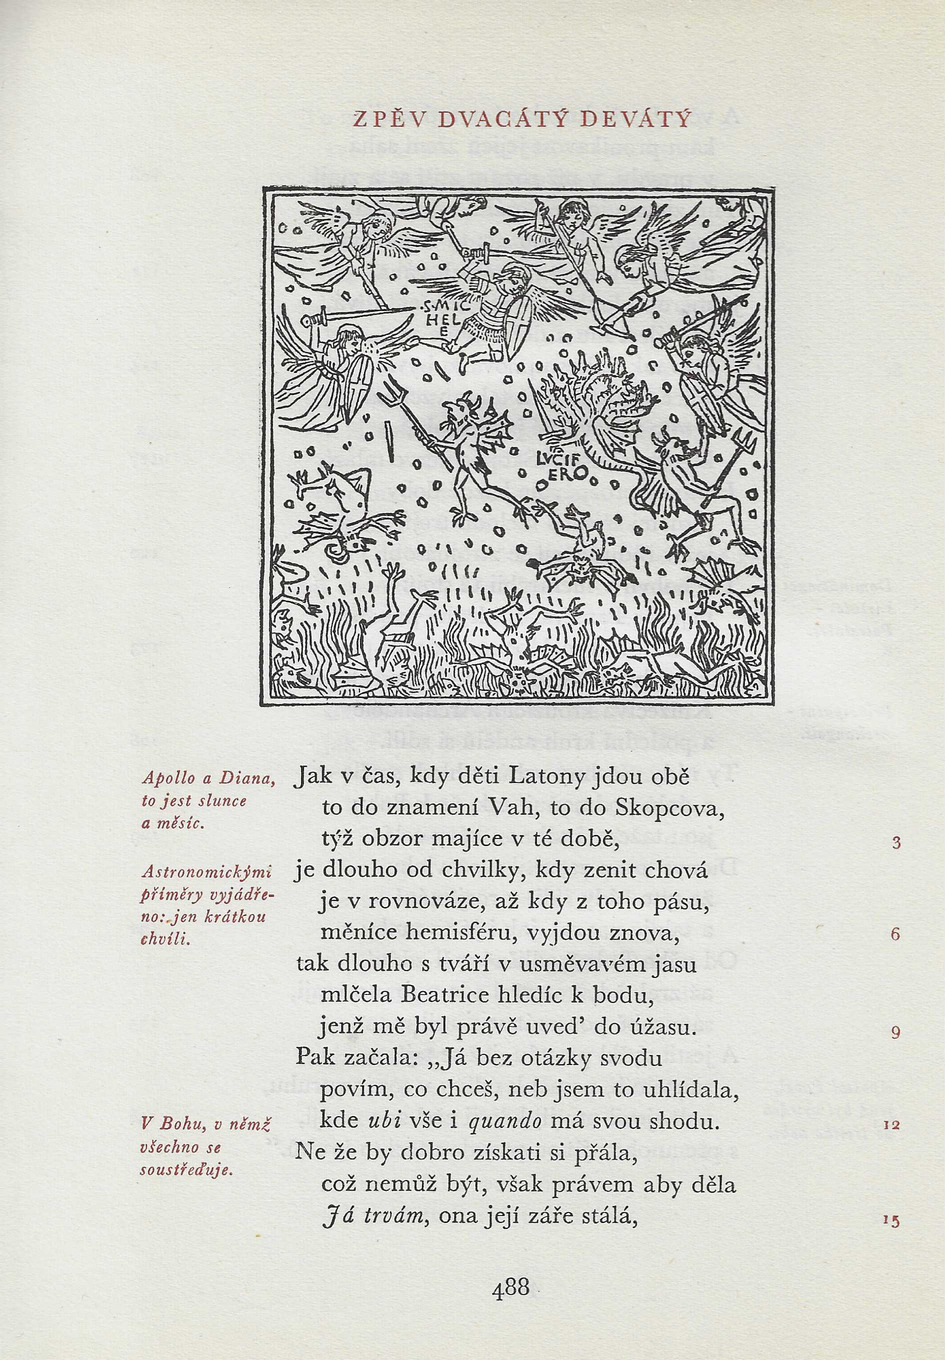 ZPĚV DVACÁTÝ DEVÁTÝ
S·MIC
HEL
E
LVCIF
ERO
Apollo a Diana,
to jest slunce
a měsíc.
Jak v čas, kdy děti Latony jdou obě
to do znamení Vah, to do Skopcova,
týž obzor majíce v té době,
3
Astronomickými
příměry vyjádře-
no: jen krátkou
chvíli.
je dlouho od chvilky, kdy zenit chová
je v rovnováze, až kdy z toho pásu,
měníce hemisféru, vyjdou znova,
6
tak dlouho s tváří v usměvavém jasu
mlčela Beatrice hledíc k bodu,
jenž mě byl právě uved’ do úžasu.
9
Pak začala: „Já bez otázky svodu
povím, co chceš, neb jsem to uhlídala,
kde ubi vše i quando má svou shodu.
12
V Bohu, v němž
všechno se
soustřeďuje.
Ne že by dobro získati si přála,
což nemůž být, však právem aby děla
Já trvám, ona její záře stálá,
15
488